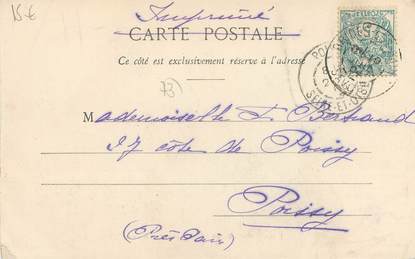 15 €
Imprimé
CARTE POSTALE
Ce côté est exclusivement réservé à l'adresse
73
Mademoiselle F. Bertrand
17 côte de Poissy
Poissy
(Près Paris)